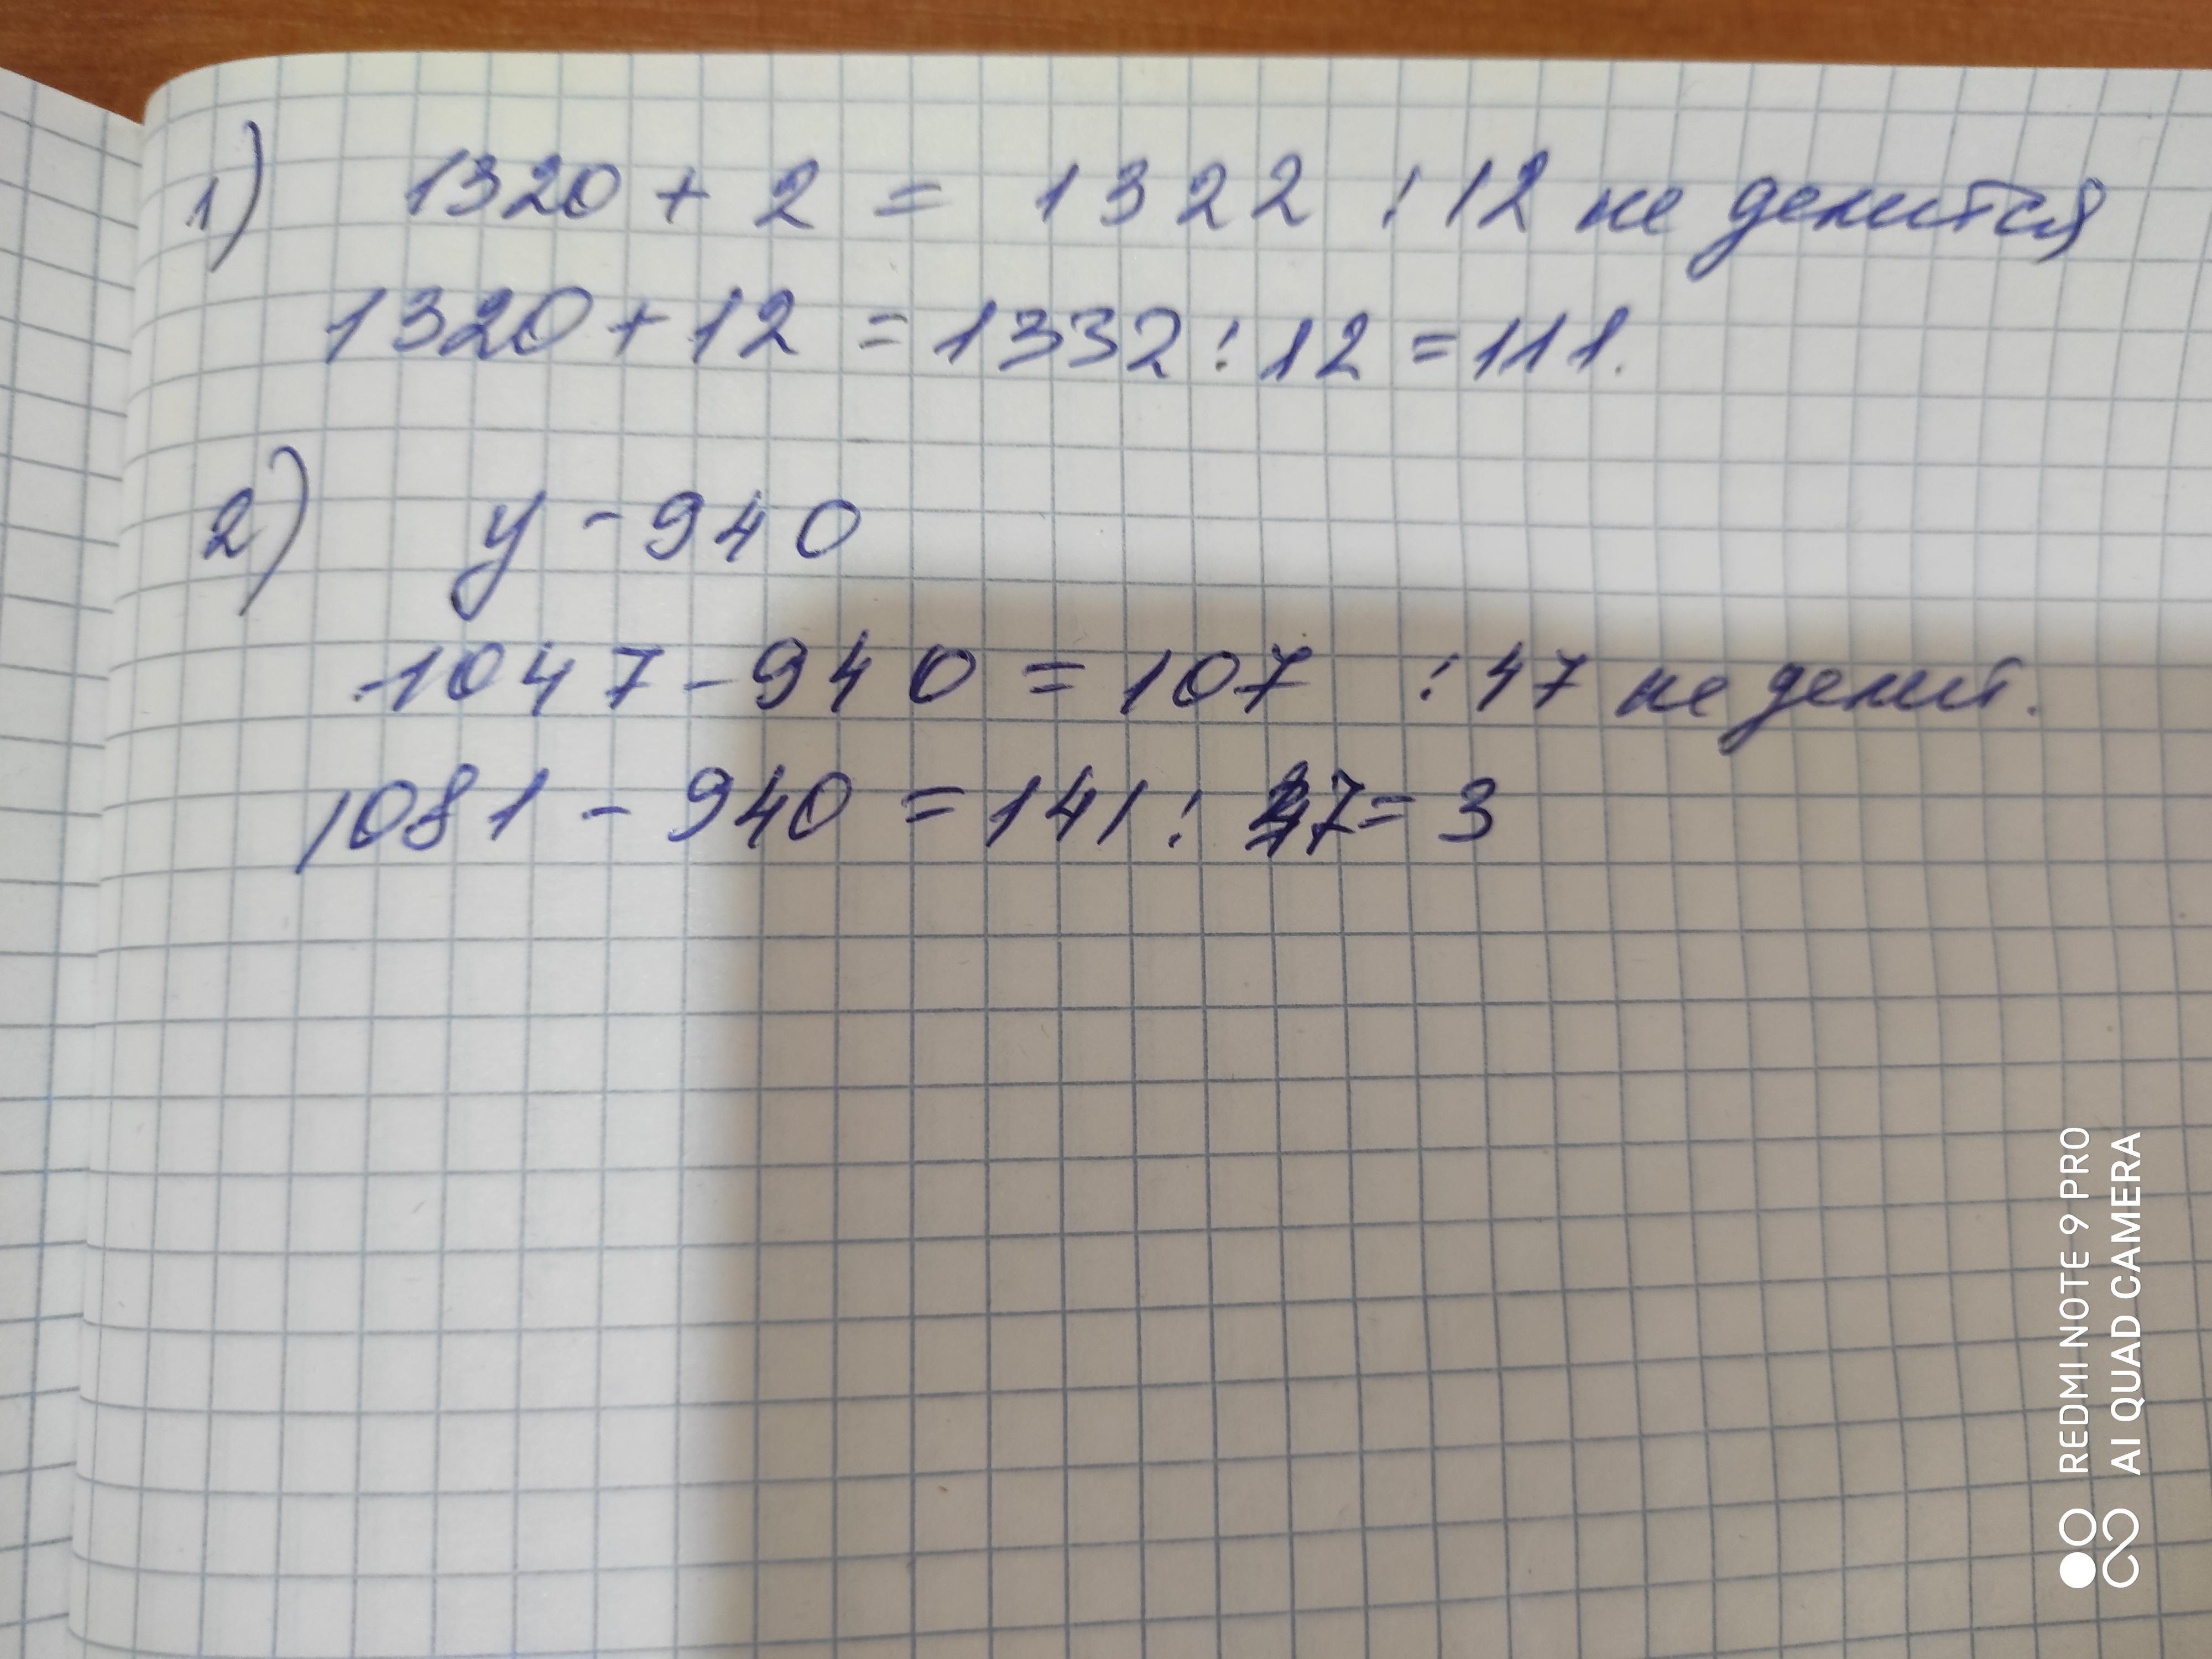 1) 1320 + 2 = 1322 : 12 не делится
1320 + 12 = 1332 : 12 = 111.
2) y - 940
1047 - 940 = 107 : 47 не делит.
1081 - 940 = 141 : 47 = 3
REDMI NOTE 9 PRO
AI QUAD CAMERA